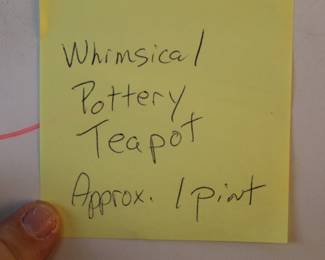 Whimsical
Pottery
Teapot
Approx. 1 pint